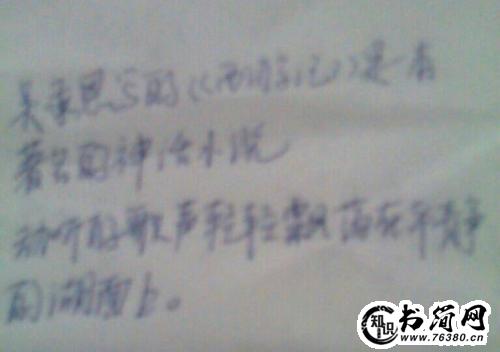 吴承恩写的《西游记》是一有
著名的神话小说
动听的歌声轻轻飘荡在平静
的湖面上。
知识
书简网
www.76380.cn